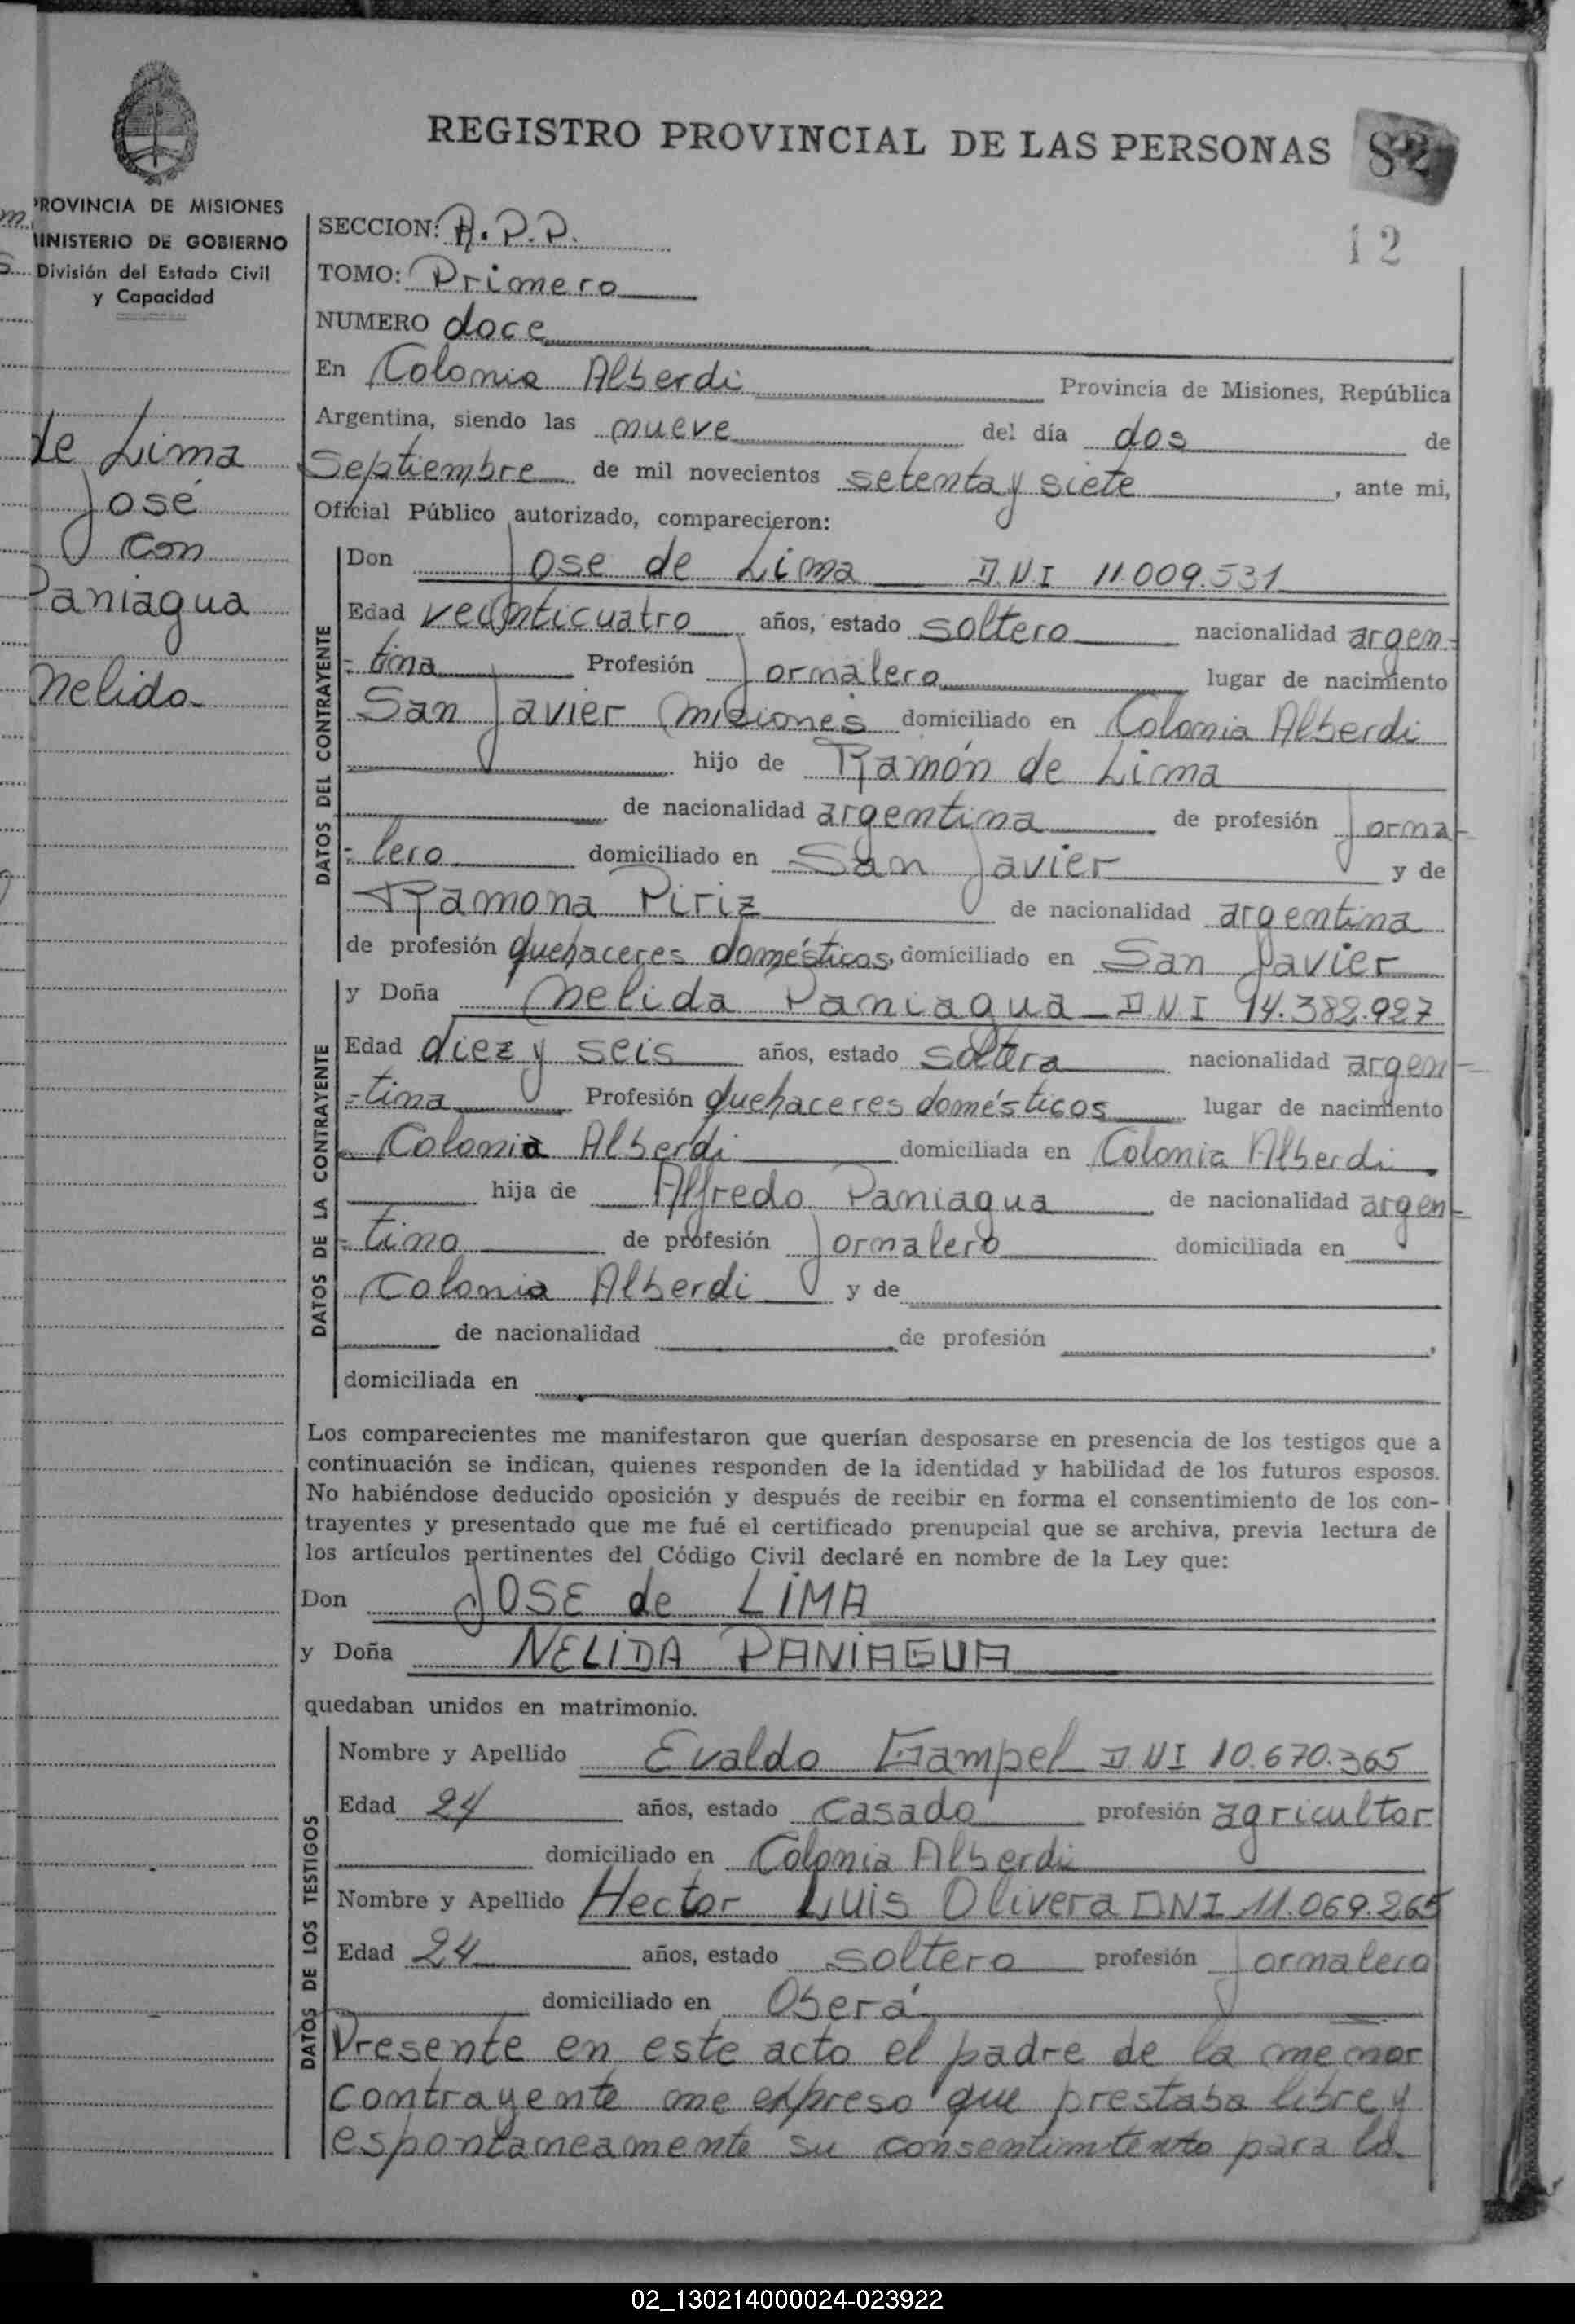 REGISTRO PROVINCIAL DE LAS PERSONAS 82
12
PROVINCIA DE MISIONES
MINISTERIO DE GOBIERNO
División del Estado Civil
y Capacidad
de Lima
José
con
Paniagua
Nelida
SECCION: R.P.P.
TOMO: Primero
NUMERO doce
En Colonia Alberdi Provincia de Misiones, República
Argentina, siendo las nueve del día dos de
Septiembre de mil novecientos setenta y siete, ante mi,
Oficial Público autorizado, comparecieron:
DATOS DEL CONTRAYENTE
Don Jose de Lima D.N.I 11.009.531
Edad veinticuatro años, estado soltero nacionalidad argen-
-tina Profesión Jornalero lugar de nacimiento
San Javier Misiones domiciliado en Colonia Alberdi
hijo de Ramón de Lima
de nacionalidad argentina de profesión Jorna-
-lero domiciliado en San Javier y de
Ramona Piriz de nacionalidad argentina
de profesión quehaceres domésticos, domiciliado en San Javier
DATOS DE LA CONTRAYENTE
y Doña Nelida Paniagua D.N.I 14.382.927
Edad diez y seis años, estado soltera nacionalidad argen-
-tina Profesión quehaceres domésticos lugar de nacimiento
Colonia Alberdi domiciliada en Colonia Alberdi
hija de Alfredo Paniagua de nacionalidad argen-
-tino de profesión Jornalero domiciliada en
Colonia Alberdi y de
de nacionalidad de profesión ,
domiciliada en
Los comparecientes me manifestaron que querían desposarse en presencia de los testigos que a
continuación se indican, quienes responden de la identidad y habilidad de los futuros esposos.
No habiéndose deducido oposición y después de recibir en forma el consentimiento de los con-
trayentes y presentado que me fué el certificado prenupcial que se archiva, previa lectura de
los artículos pertinentes del Código Civil declaré en nombre de la Ley que:
Don JOSE de LIMA
y Doña NELIDA PANIAGUA
quedaban unidos en matrimonio.
DATOS DE LOS TESTIGOS
Nombre y Apellido Evaldo Gampel D.N.I 10.670.365
Edad 24 años, estado casado profesión agricultor
domiciliado en Colonia Alberdi
Nombre y Apellido Hector Luis Olivera DNI 11.069.265
Edad 24 años, estado soltero profesión Jornalero
domiciliado en Oberá
Presente en este acto el padre de la menor
contrayente me expreso que prestaba libre y
espontaneamente su consentimiento para la
02_130214000024-023922